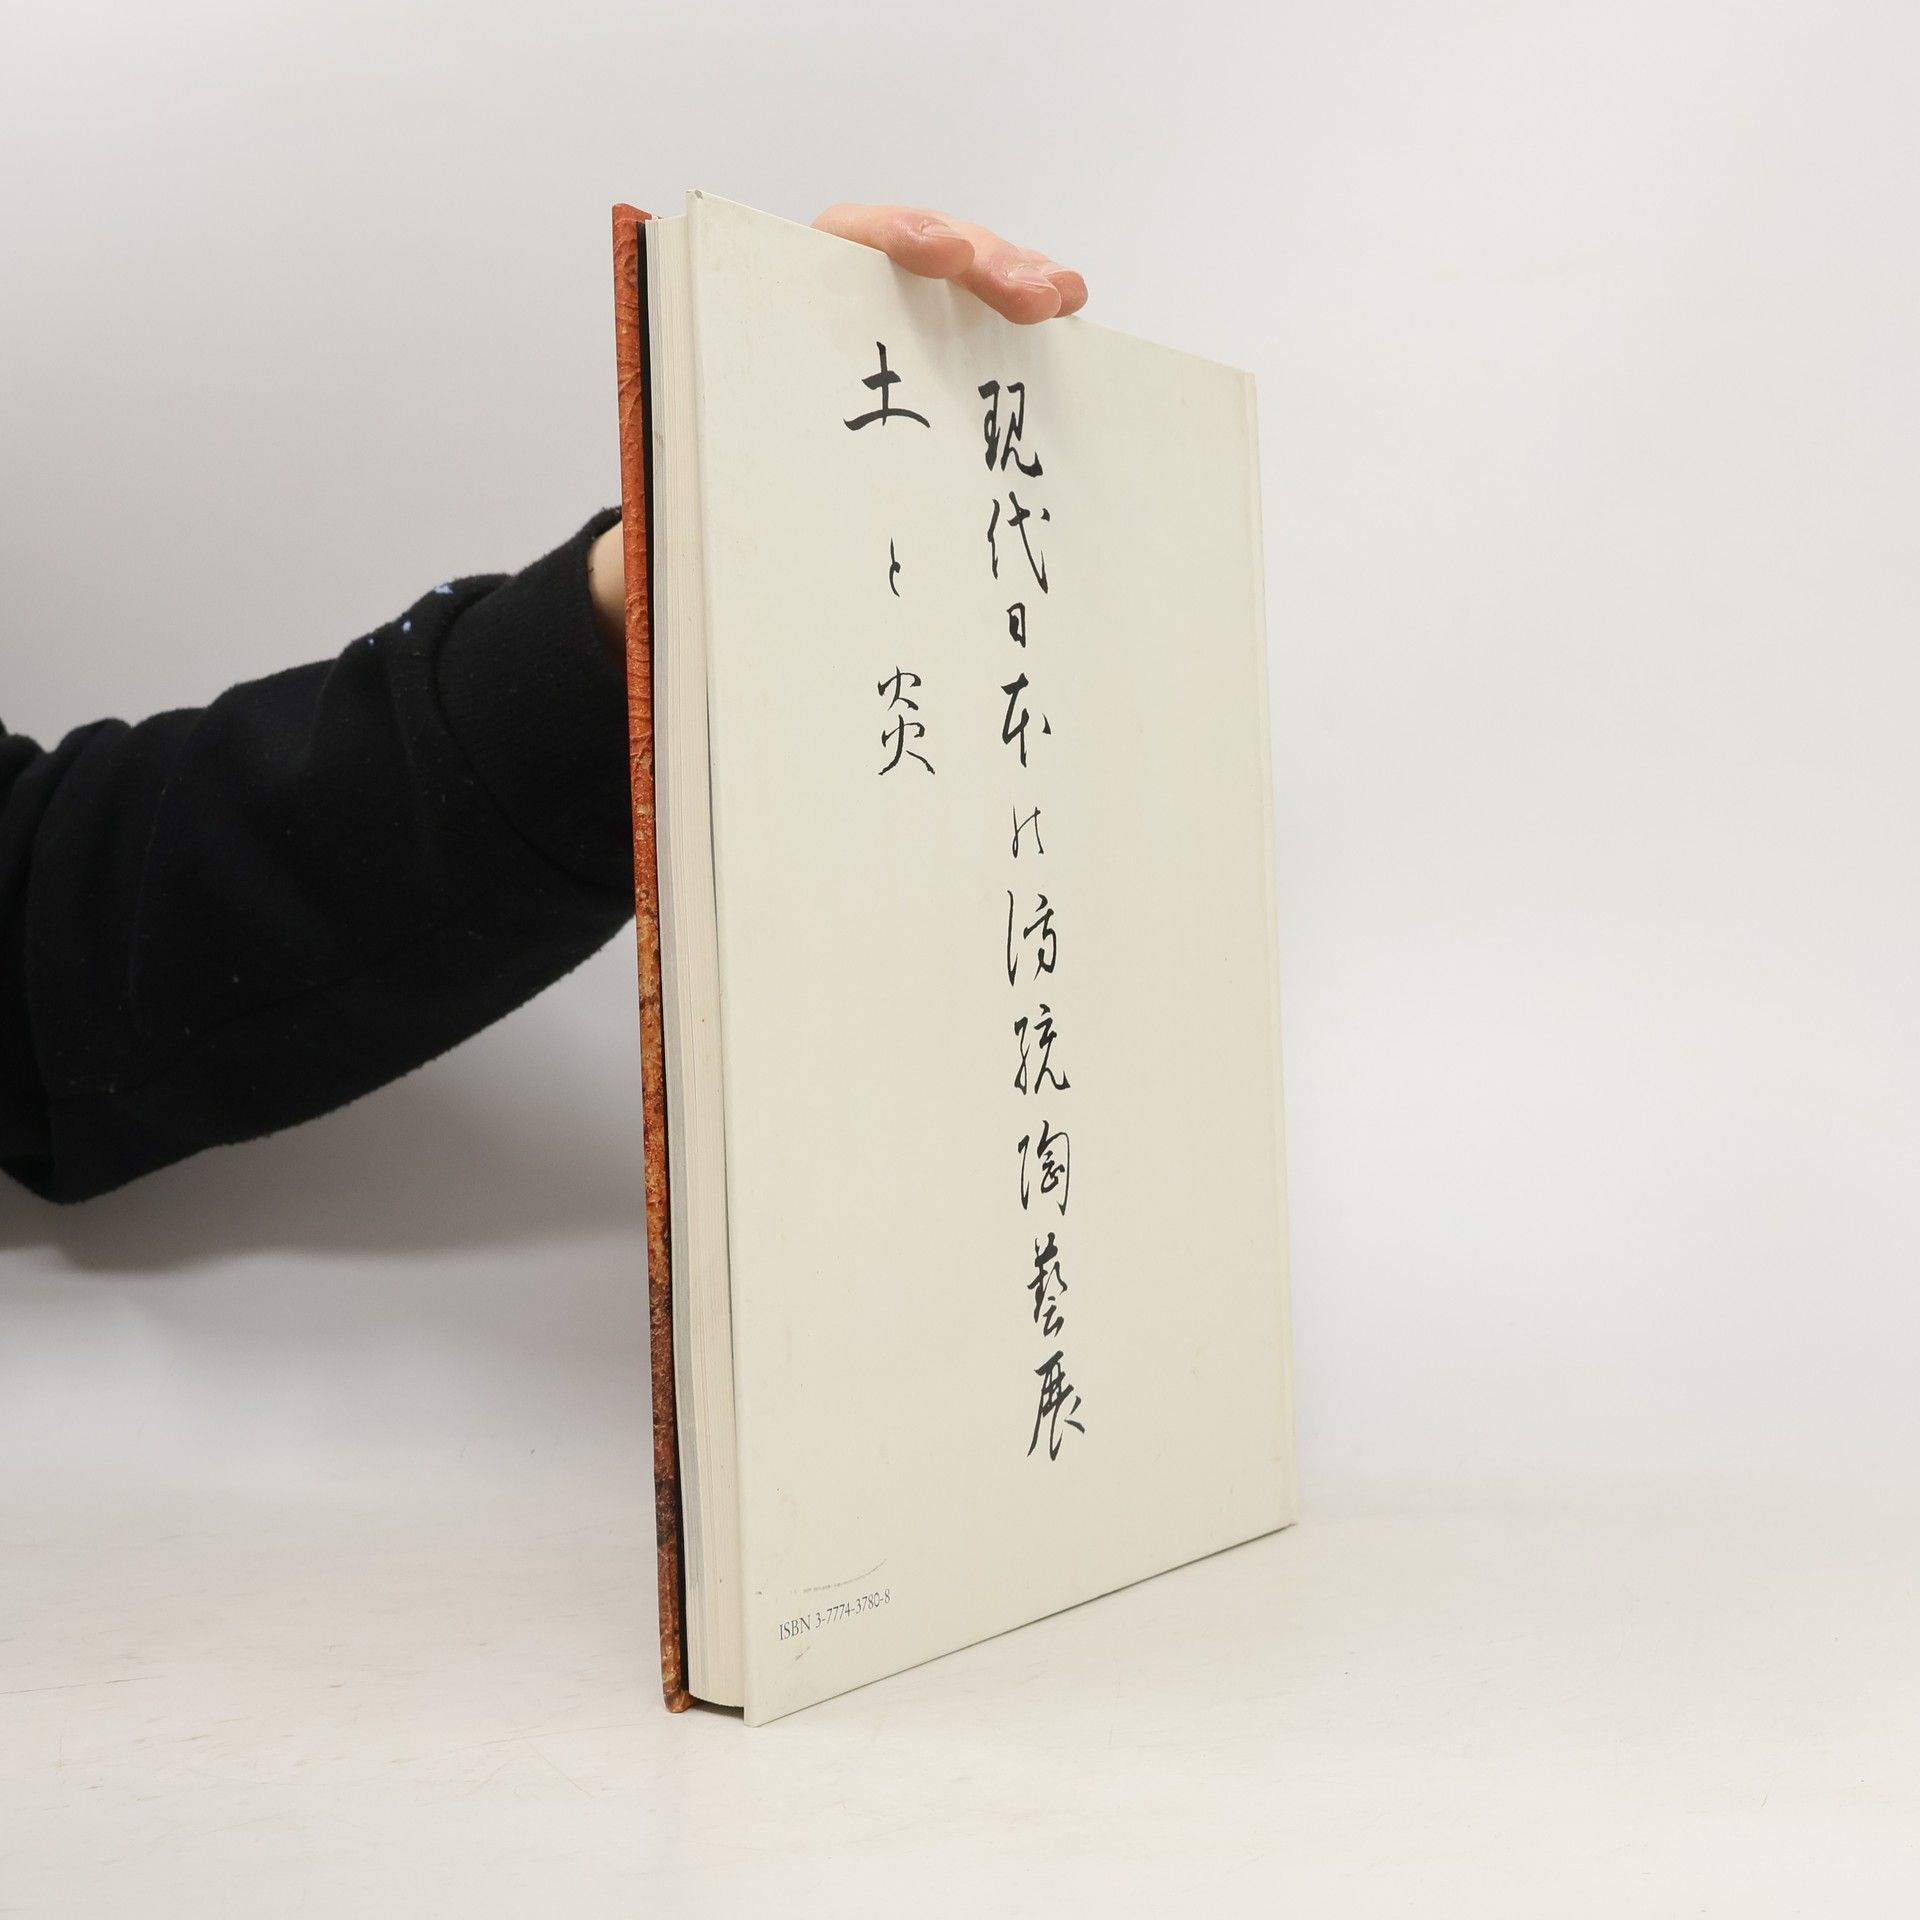 現代日本の傳統陶藝展
土と炎
ISBN 3-7774-3780-8